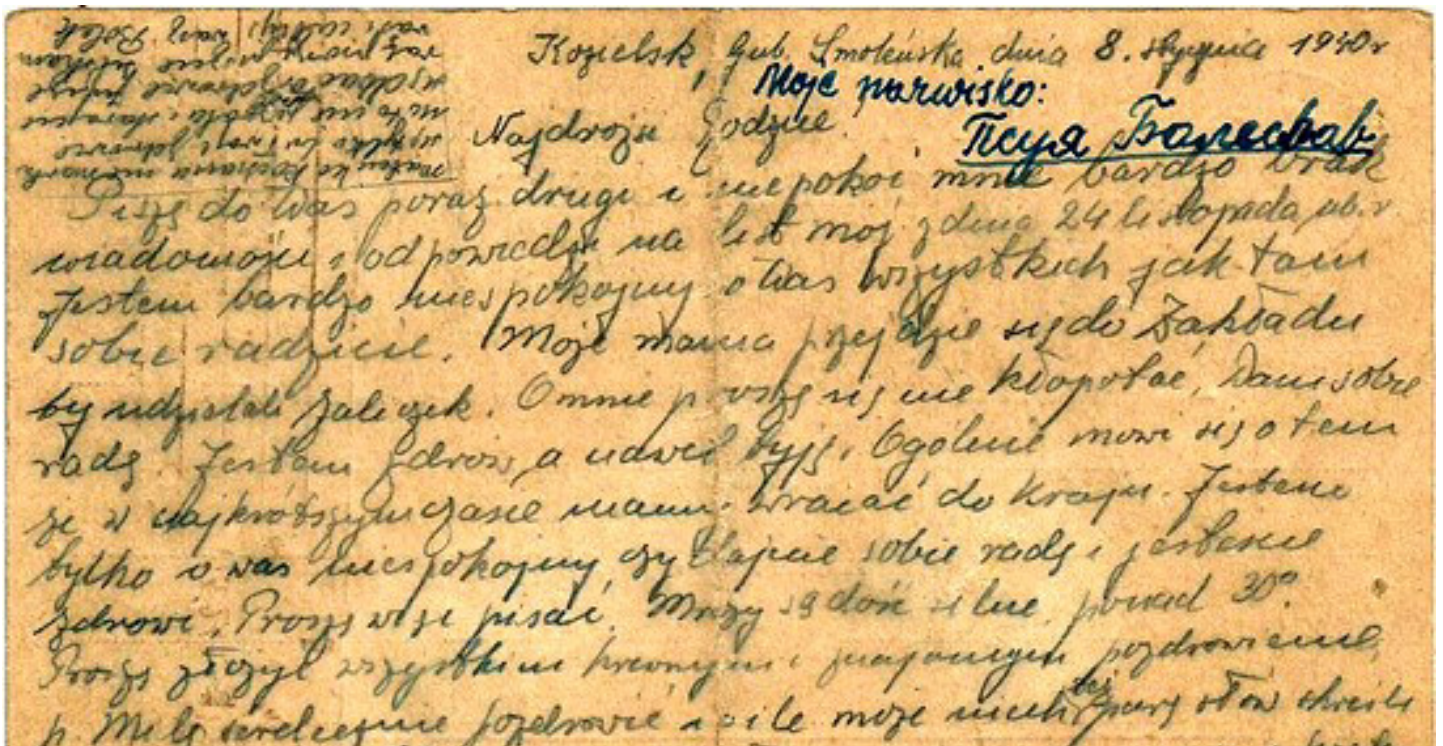 Kozielsk, gub. Smoleńska dnia 8. stycznia 1940 r
Moje nazwisko:
Najdrożsi Rodzice!
Псуя Болеслав
Piszę do Was poraz drugi i niepokoi mnie bardzo brak
wiadomości i odpowiedzi na list mój z dnia 24 listopada ub. r.
Jestem bardzo niespokojny o Was wszystkich jak tam
sobie radzicie. Może mama przejdzie się do Zakładu
by udzielali zaliczek. O mnie proszę się nie kłopotać, Dam sobie
radę. Jestem zdrów, a nawet tyję. Ogólnie mówi się o tem
że w najkrótszym czasie mamy wracać do kraju. Jestem
tylko o was niespokojny, czy dajecie sobie radę i jesteście
zdrowi. Proszę więc pisać. Mrozy są dość silne, ponad 30°.
Proszę złożyć wszystkim krewnym i znajomym pozdrowienia,
p. Milę serdecznie pozdrowić i o ile może niech też parę słów skreśli